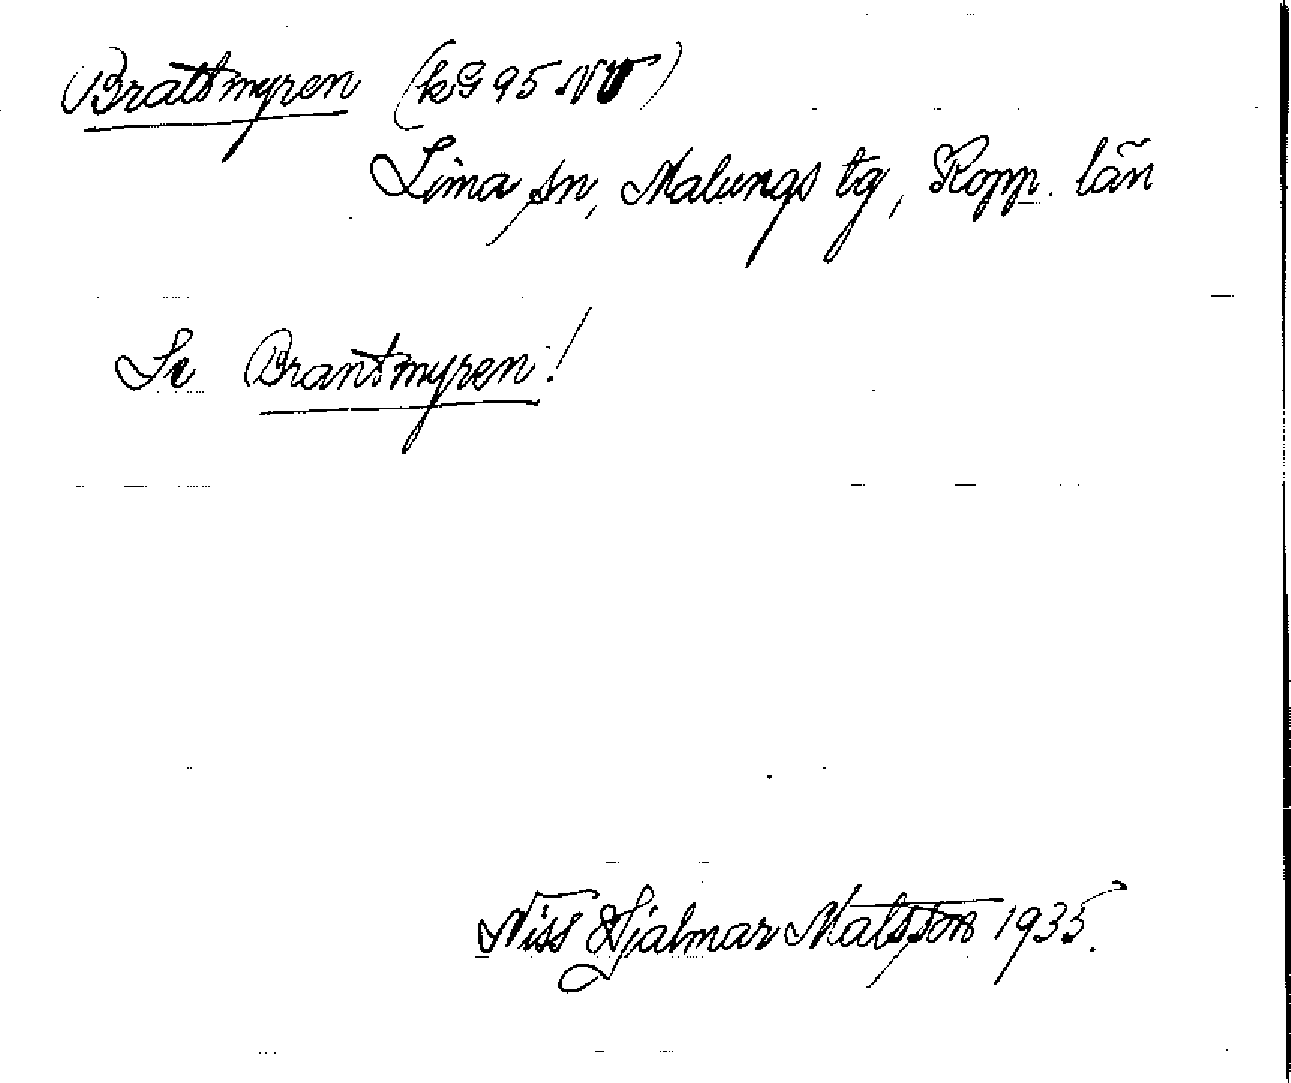 Brattmyren (kG 95 NV)
Lima sn, Malungs tg, Kopp. län
Se Brantmyren!
Niss Hjalmar Matsson 1935.